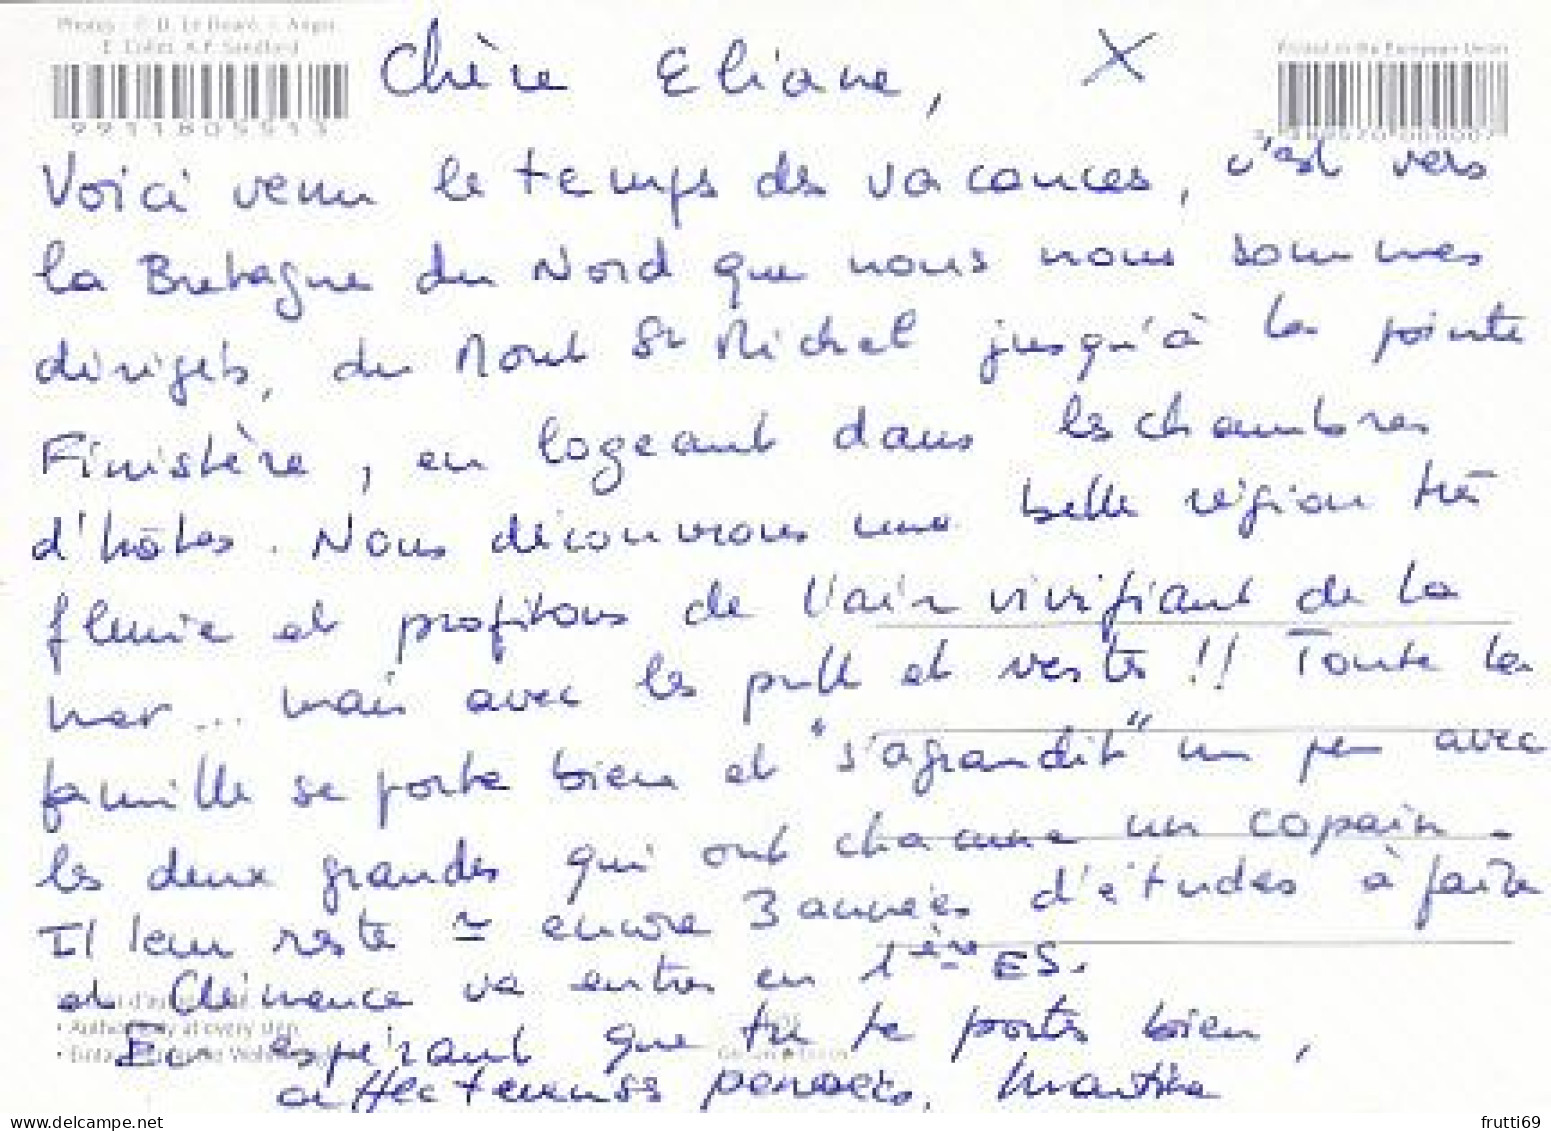 Photos : © D. Le Doaré - Angel
E. Collet A.P. Sandford
Printed in the European Union
9911805513
Chère Eliane, X
Voici venu le temps des vacances, c'est vers
la Bretagne du Nord que nous nous sommes
dirigés, du Mont St Michel jusqu'à la pointe
Finistère, en logeant dans les chambres
d'hôtes. Nous découvrons une belle région très
fleurie et profitons de l'air vivifiant de la
mer... mais avec les pulls et vestes !! Toute la
famille se porte bien et "s'agrandit" un peu avec
les deux grandes qui ont chacune un copain.
Il leur reste ≃ encore 3 années d'études à faire
et Clémence va entrer en 1ère ES.
• Authenticity at every step
En espérant que tu te portes bien,
affectueuses pensées, Martine
frutti69